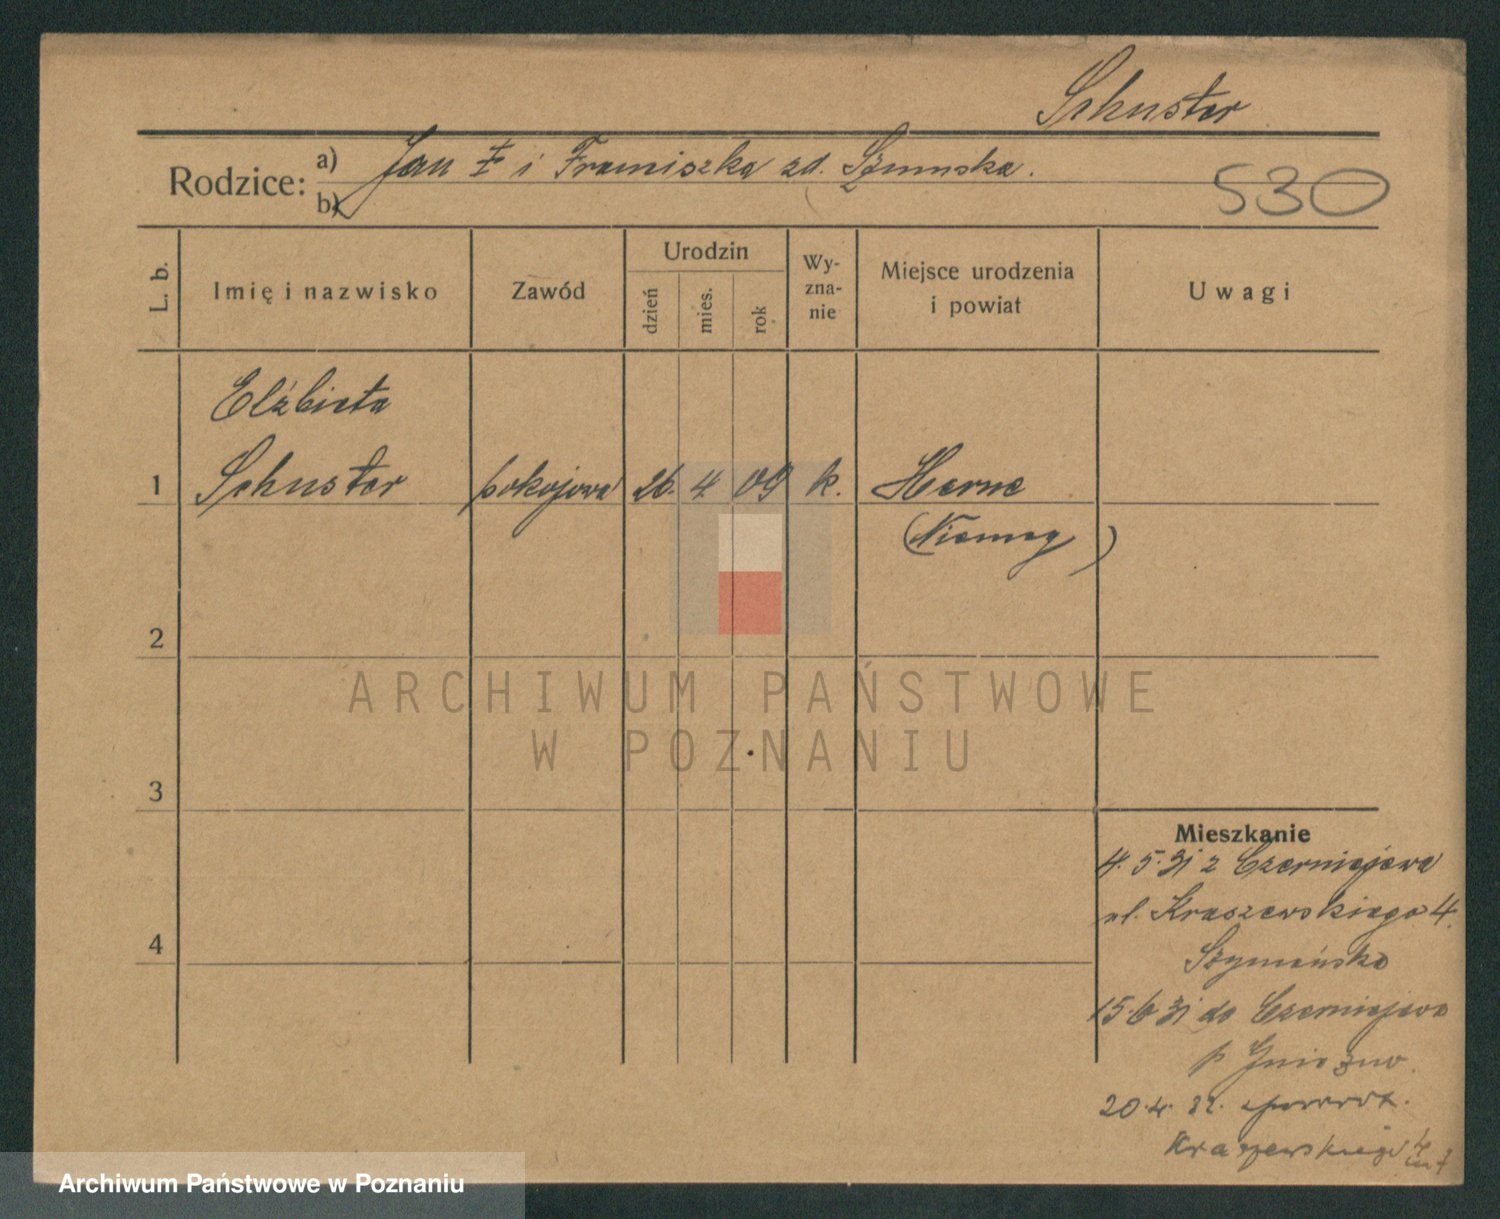 Schuster
Rodzice: a) Jan ‡ i Franciszka zd. Szumska.
b)
530
L. b. Imię i nazwisko Zawód Urodzin dzień mies. rok Wy-zna-nie Miejsce urodzenia i powiat Uwagi
Elżbieta
1 Schuster pokojowa 26. 4. 09 k. Herne
(Niemcy)
2
3
4
Mieszkanie
4.5.31 z Czerniejewa
ul. Kraszewskiego 4.
Szymańska
15.6.31 do Czerniejewa
p Gniezno.
20.4.32. zpowrot.
Kraszewskiego 4
ARCHIWUM PAŃSTWOWE
W POZNANIU
Archiwum Państwowe w Poznaniu